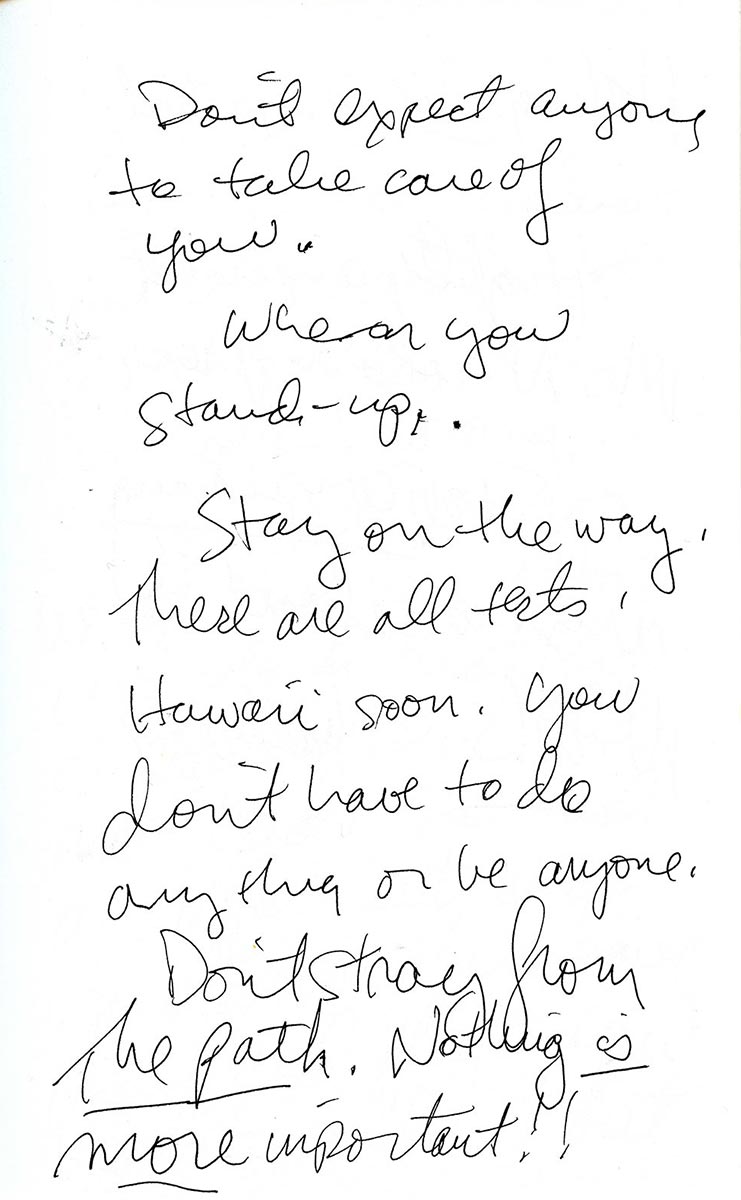 Don't expect anyone
to take care of
you.
you
stand-up.
Stay on the way.
These are all tests.
Hawaii soon. You
don't have to do
anything or be anyone.
Don't stray from
the path. Nothing is
more important!!